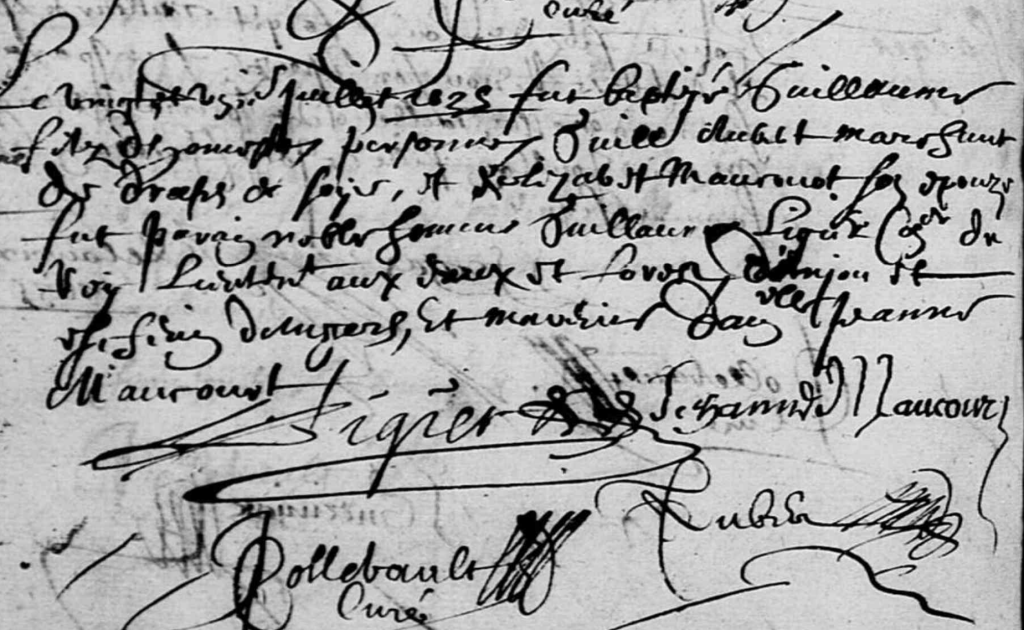 curé
Le vingt et uniesme juillet 1625 fut baptizé Guillaume
filz d'honnestes personnes Guill Aubert marchant
de draps de soye, et Elizabet Maucourt son epouze
fut parain noble homme Guillaume Ligier Coner du
Roy Lieuten aux eaux et forest d'Anjou et
d'Angers, Et maraine dam elle Jeanne
Maucourt
Ligier Jehanne Maucourt
Aubert
Pollebault
Curé